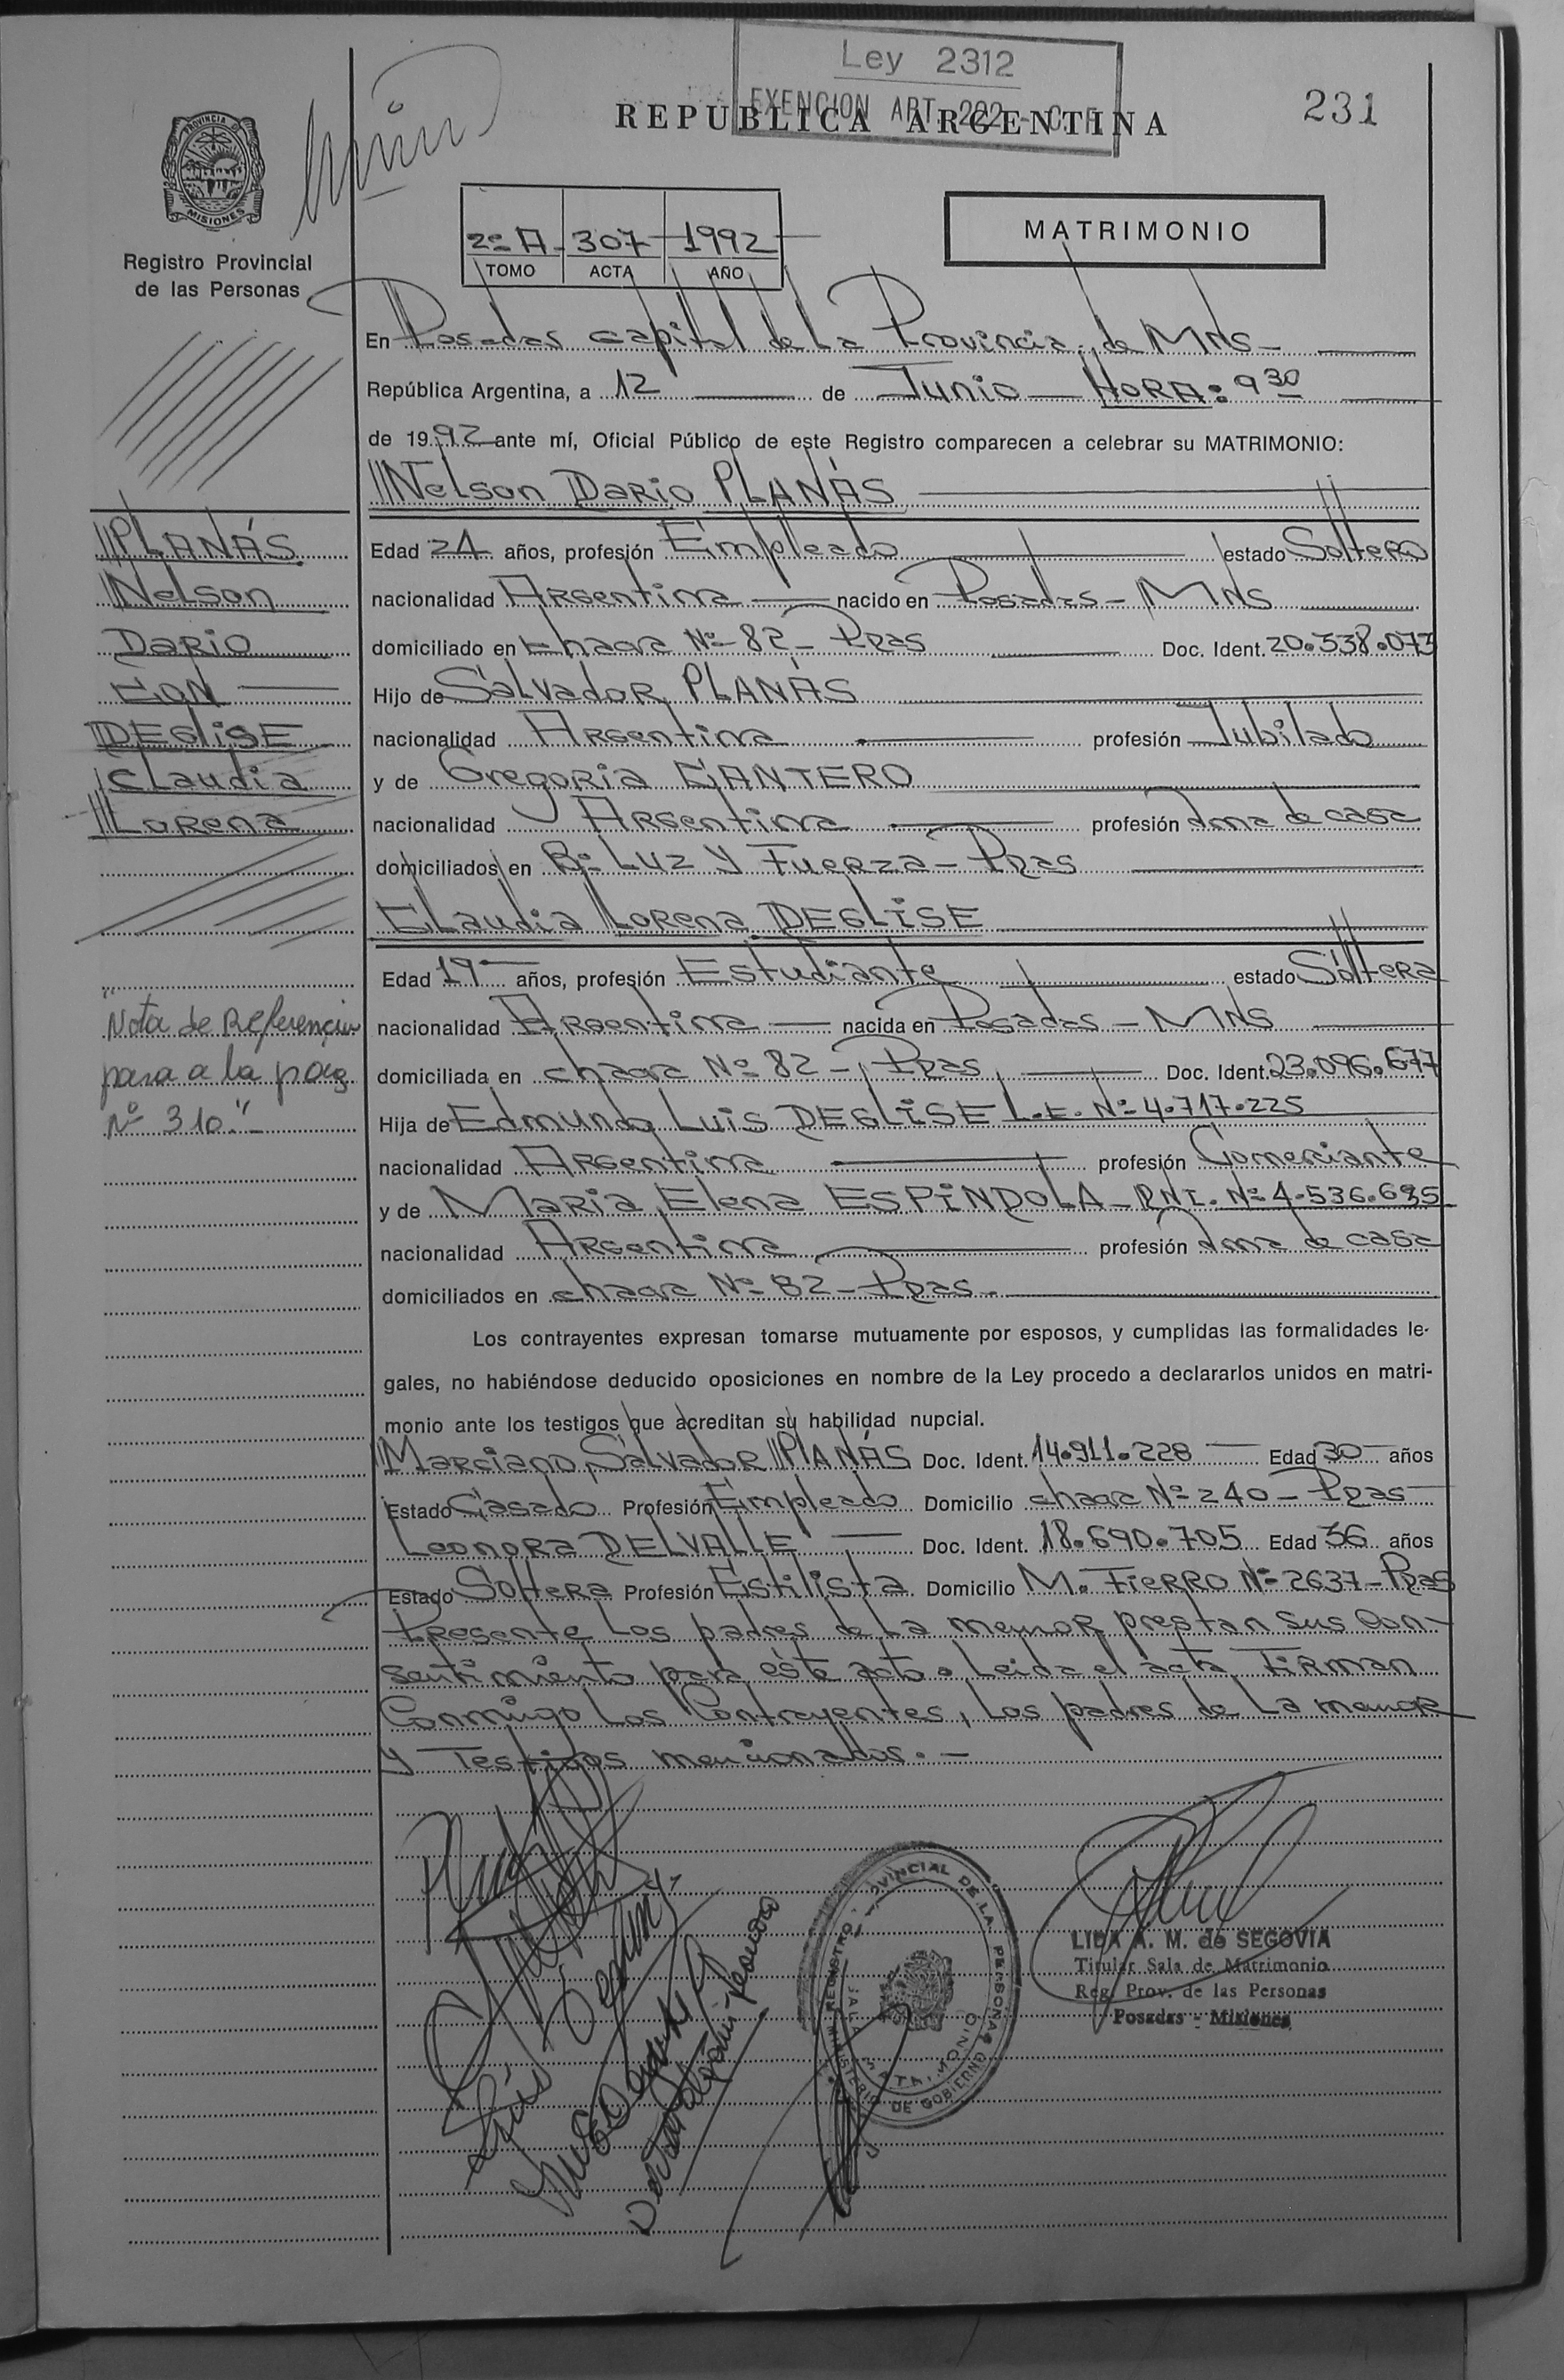 Ley 2312
EXENCION ART. 222 - C. F.
REPUBLICA ARGENTINA
231
PROVINCIA DE
MISIONES
Registro Provincial
de las Personas
2º A - 307 - 1992
TOMO ACTA AÑO
MATRIMONIO
En Posadas capital de la Provincia de Mns -
República Argentina, a 12 de Junio - HORA: 9 30
de 1992 ante mí, Oficial Público de este Registro comparecen a celebrar su MATRIMONIO:
Nelson Dario PLANÁS
Edad 24 años, profesión Empleado estado Soltero
nacionalidad Argentina nacido en Posadas - Mns
domiciliado en chacra Nº 82 - Pdas Doc. Ident. 20.338.073
Hijo de Salvador PLANÁS
nacionalidad Argentina profesión Jubilado
y de Gregoria CANTERO
nacionalidad Argentina profesión ama de casa
domiciliados en Bº Luz y Fuerza - Pdas
Claudia Lorena DEGLISE
Edad 19 años, profesión Estudiante estado Soltera
nacionalidad Argentina nacida en Posadas - Mns
domiciliada en chacra Nº 82 - Pdas Doc. Ident. 23.096.677
Hija de Edmundo Luis DEGLISE L.E. Nº 4.717.225
nacionalidad Argentina profesión Comerciante
y de Maria Elena ESPINDOLA - DNI. Nº 4.536.695
nacionalidad Argentina profesión ama de casa
domiciliados en chacra Nº 82 - Pdas.
Los contrayentes expresan tomarse mutuamente por esposos, y cumplidas las formalidades le-
gales, no habiéndose deducido oposiciones en nombre de la Ley procedo a declararlos unidos en matri-
monio ante los testigos que acreditan su habilidad nupcial.
Marciano Salvador PLANÁS Doc. Ident. 14.911.228 Edad 30 años
Estado Casado Profesión Empleado Domicilio chacra Nº 240 - Pdas
Leonora DELVALLE Doc. Ident. 18.690.705 Edad 36 años
Estado Soltera Profesión Estilista Domicilio M. Fierro Nº 2637 - Pdas
Presente los padres de la menor prestan sus con-
sentimiento para éste acto. Leida el acta, Firman
Conmigo los Contrayentes, los padres de la menor
y Testigos mencionados. -
PLANÁS
Nelson
Dario
CON
DEGLISE
Claudia
Lorena
"Nota de Referencia
pasa a la pág
Nº 310" -
REGISTRO PROVINCIAL DE LAS PERSONAS
SALA MATRIMONIO
MINISTERIO DE GOBIERNO
LIDA A. M. de SEGOVIA
Titular Sala de Matrimonio
Reg. Prov. de las Personas
Posadas - Misiones